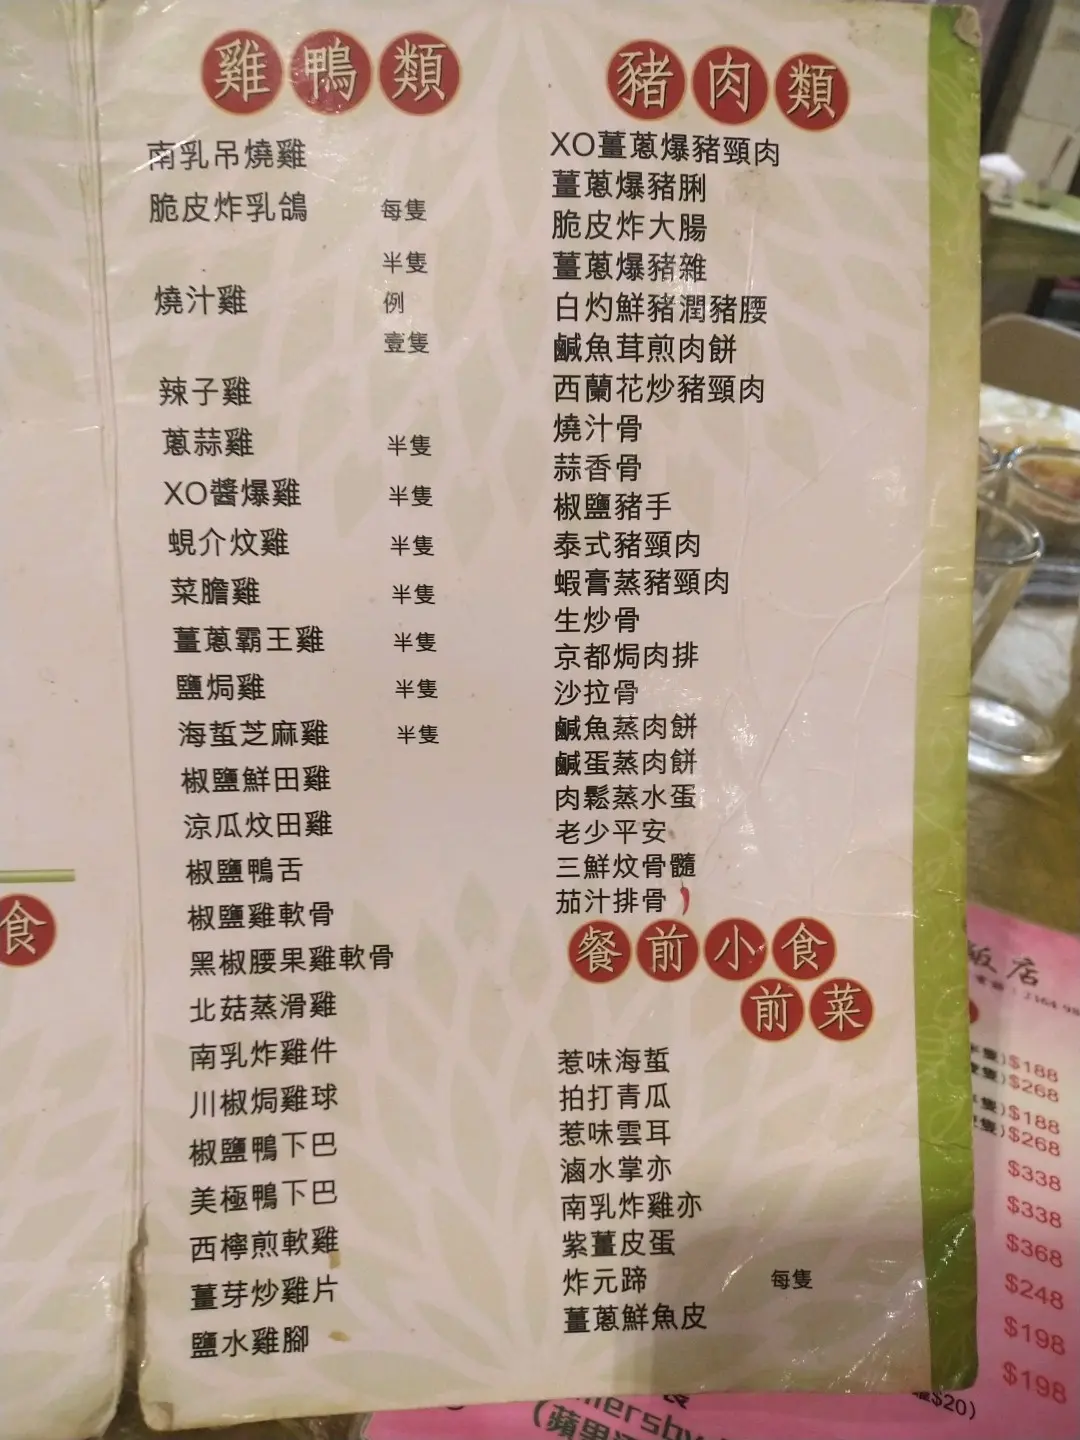 雞鴨類
南乳吊燒雞
脆皮炸乳鴿 每隻
半隻
燒汁雞 例
壹隻
辣子雞
蔥蒜雞 半隻
XO醬爆雞 半隻
蜆介炆雞 半隻
菜膽雞 半隻
薑蔥霸王雞 半隻
鹽焗雞 半隻
海蜇芝麻雞 半隻
椒鹽鮮田雞
涼瓜炆田雞
椒鹽鴨舌
椒鹽雞軟骨
黑椒腰果雞軟骨
北菇蒸滑雞
南乳炸雞件
川椒焗雞球
椒鹽鴨下巴
美極鴨下巴
西檸煎軟雞
薑芽炒雞片
鹽水雞腳
豬肉類
XO薑蔥爆豬頸肉
薑蔥爆豬脷
脆皮炸大腸
薑蔥爆豬雜
白灼鮮豬潤豬腰
鹹魚茸煎肉餅
西蘭花炒豬頸肉
燒汁骨
蒜香骨
椒鹽豬手
泰式豬頸肉
蝦膏蒸豬頸肉
生炒骨
京都焗肉排
沙拉骨
鹹魚蒸肉餅
鹹蛋蒸肉餅
肉鬆蒸水蛋
老少平安
三鮮炆骨髓
茄汁排骨
餐前小食
前菜
惹味海蜇
拍打青瓜
惹味雲耳
滷水掌亦
南乳炸雞亦
紫薑皮蛋
炸元蹄 每隻
薑蔥鮮魚皮
食
飯店
隻)$188
隻)$268
隻)$188
隻)$268
$338
$338
$368
$248
$198
$198
$20)
(蘋果